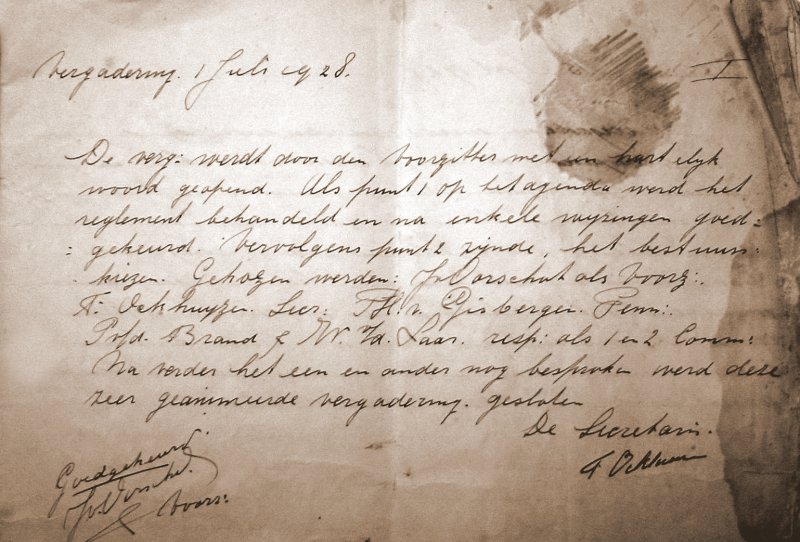 Vergadering. 1 Juli 1928.
I
De verg: werdt door den Voorzitter met en hart elyk
woord geopend. Als punt 1 op het agenda werd het
reglement behandeld en na enkele wyzingen goed=
= gekeurd. Vervolgens punt 2 zynde, het bestuurs:
kiezen. Gekozen werden: Jv Vorschot als Voorz:
F. Ockhuyzen. Secr: Th. v. Gisbergen. Penn:
Brand & W. v/d. Laar. resp: als 1 en 2 Comm:
Na verder het een en ander nog besproken werd deze
zeer geanimeerde vergadering. gesloten
De Secretaris.
F Ockhuis
Goedgekeurd.
Jv. Vorscho
Voorz: